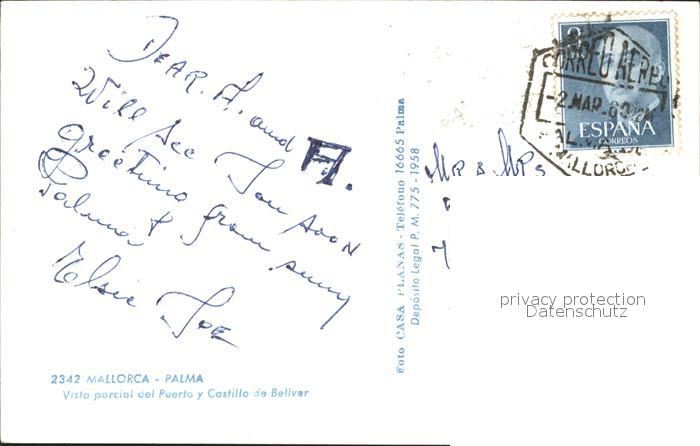 DEAR. A. and A.
Will see You soon
greetings from sunny
Palma
Elsie Joe
2342 MALLORCA - PALMA
Vista parcial del Puerto y Castillo de Bellver
Foto CASA PLANAS - Teléfono 16665 Palma
Depósito Legal P. M. 775 - 1958
MR & MRS
CORREO AEREO
-2.MAR.60
MALLORCA
ESPAÑA
CORREOS
privacy protection
Datenschutz